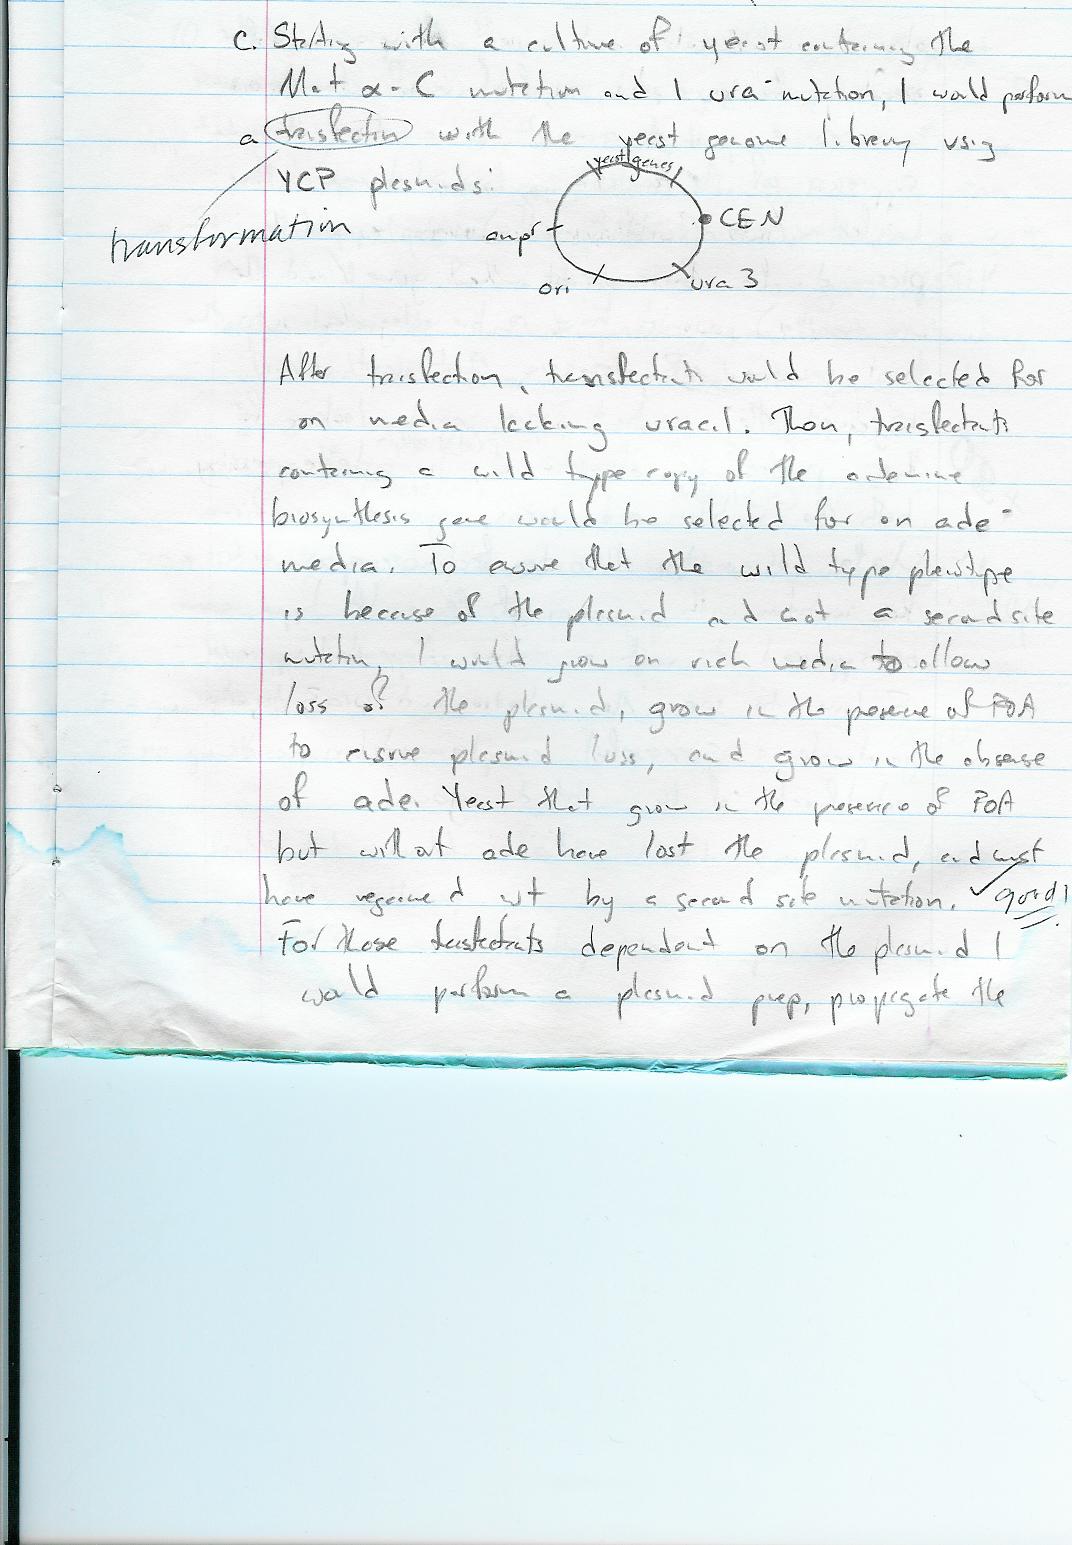 c. Starting with a culture of yeast containing the
Mat α-C mutation and 1 ura⁻ mutation, I would perform
a transfection with the yeast genome library using
YCP plasmids:
transformation
yeast genes
CEN
ampr
ori
ura 3
After transfection, transfectants would be selected for
on media lacking uracil. Then, transfectants
containing a wild type copy of the adenine
biosynthesis gene would be selected for on ade⁻
media. To assure that the wild type phenotype
is because of the plasmid and not a second site
mutation, I would grow on rich media to allow
loss of the plasmid, grow in the presence of FOA
to ensure plasmid loss, and grow in the absense
of ade. Yeast that grow in the presence of FOA
but without ade have lost the plasmid, and must
have regained wt by a second site mutation. ✓ good!
For those transfectants dependent on the plasmid I
would perform a plasmid prep, propagate the